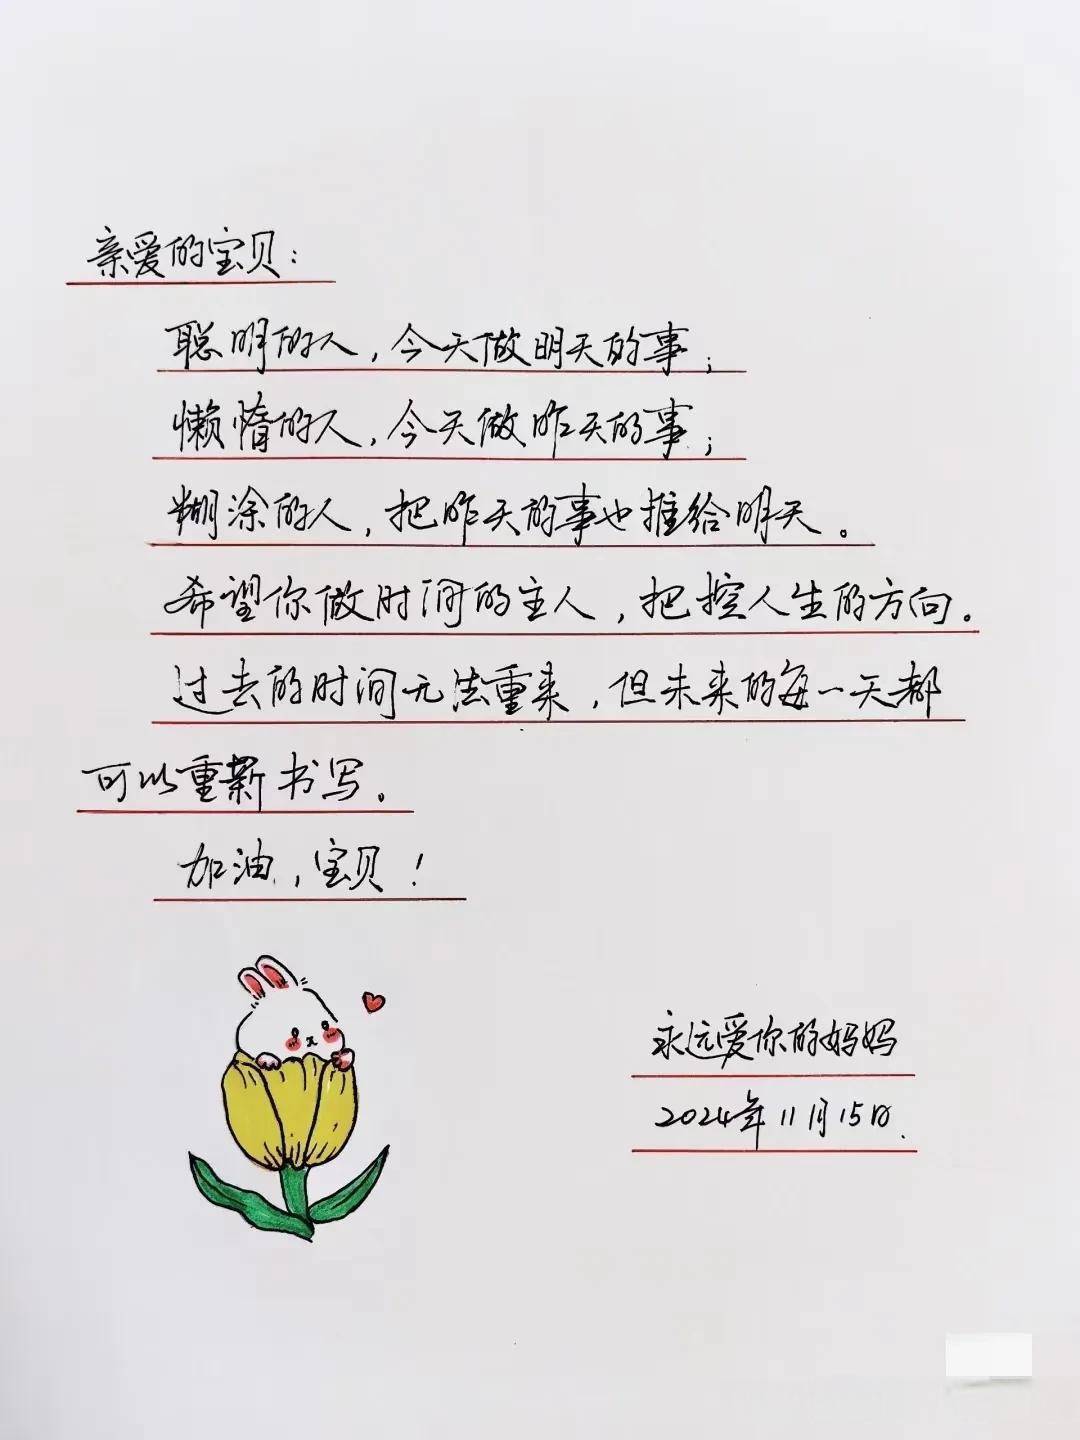 亲爱的宝贝：
聪明的人，今天做明天的事；
懒惰的人，今天做昨天的事；
糊涂的人，把昨天的事也推给明天。
希望你做时间的主人，把控人生的方向。
过去的时间无法重来，但未来的每一天都
可以重新书写。
加油，宝贝！
永远爱你的妈妈
2024年11月15日.